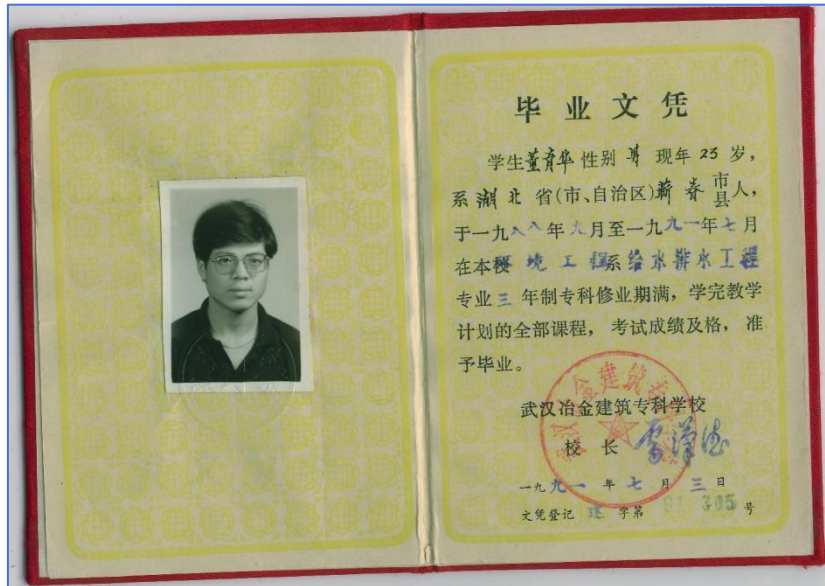 毕业文凭
学生董育华性别男现年23岁，
系湖北省(市、自治区)蕲春市县人，
于一九八八年九月至一九九一年七月
在本校环境工程系给水排水工程
专业三年制专科修业期满，学完教学
计划的全部课程，考试成绩及格，准
予毕业。
武汉冶金建筑专科学校
校长
一九九一年七月三日
文凭登记建字第91305号